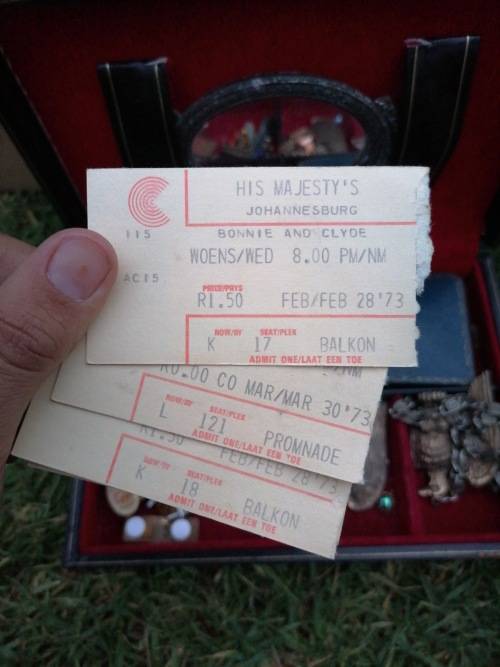 HIS MAJESTY'S
JOHANNESBURG
115 BONNIE AND CLYDE
WOENS/WED 8.00 PM/NM
AC15
PRICE/PRYS
R1.50 FEB/FEB 28'73
ROW/RY SEAT/PLEK
K 17 BALKON
ADMIT ONE/LAAT EEN TOE
R0.00 CO MAR/MAR 30'73
ROW/RY SEAT/PLEK
L 121 PROMNADE
ADMIT ONE/LAAT EEN TOE
R1.50 FEB/FEB 28'73
ROW/RY SEAT/PLEK
K 18 BALKON
ADMIT ONE/LAAT EEN TOE